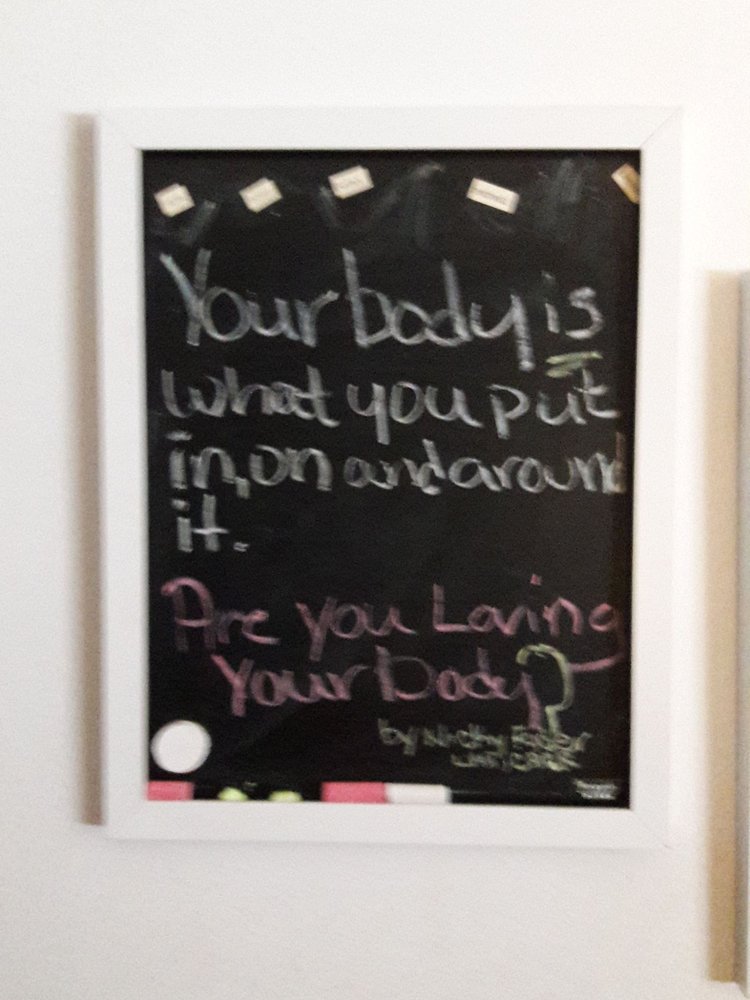 Your body is
what you put
in, on and around
it.
Are you Loving
Your body?
by